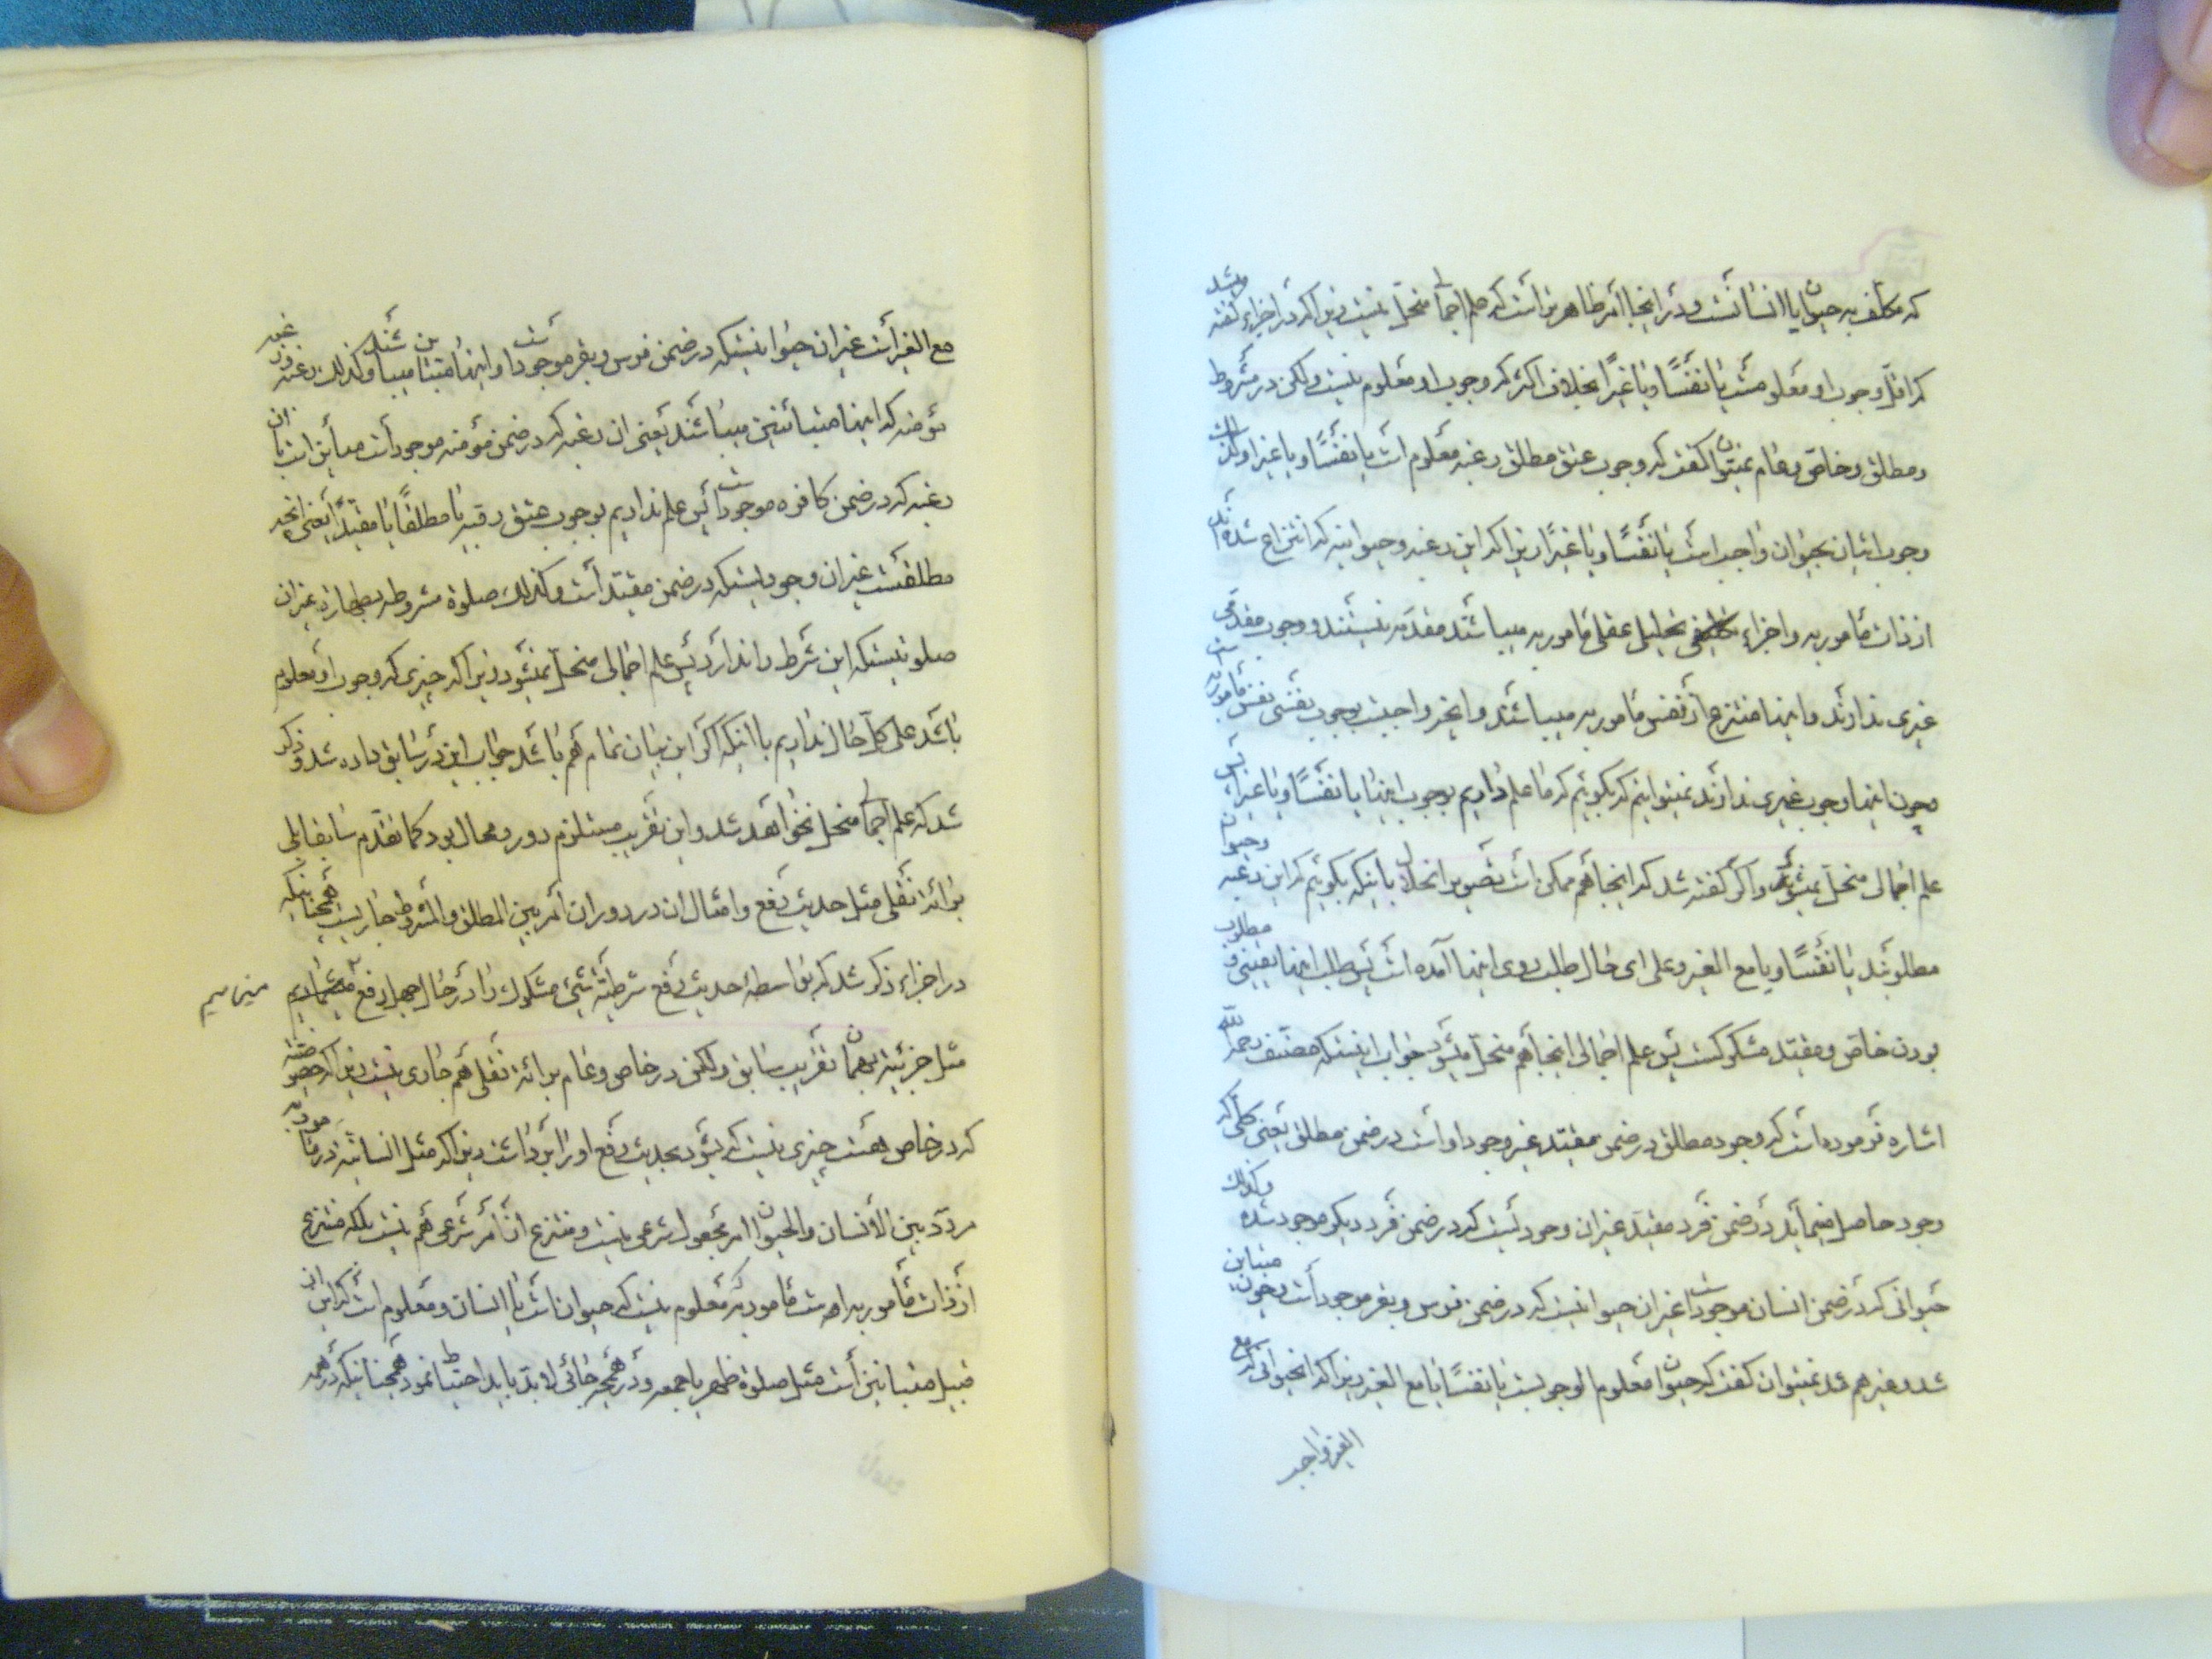 که مکلف به حیوان یا انسانست و در اینجا امر ظاهر تر است که علم اجمالی منحل نیست زیرا که در اجزاء گفته میشد
که اقل وجوب او معلومست یا نفسًا و یا غیرًا بخلاف اکثر که وجوب او معلوم نیست ولکن در مشروط
و مطلق و خاص و عام نمیتوان گفت که وجوب عتق مطلق رقبه معلوم است یا نفسًا و یا غیرا و کذلک
وجوب اتیان بحیوان واجب است یا نفسًا و یا غیرًا زیرا که این رقبه و حیوانیه که انتزاع شده‌اند
از ذات مأمور به و اجزاء تحلیل عقلی مأمور به میباشند مقدمه نیستند و وجوب مقدمی
غیری ندارند و اینها منتزع از نفس مأمور به میباشند و آنچه واجبست بوجوب نفسی نفس مأمور به است
و چون اینها وجوب غیری ندارند نمیتوانیم که بگوئیم که ما علم داریم بوجوب اینها یا نفسًا و یا غیرا پس
علم اجمالی منحل نمیشود و اگر گفته شد که اینجا هم ممکن است تصویر انحلال باینکه بگوئیم که این رقبه و حیوان
مطلوبند یا نفسًا و یا مع الغیر و علی ای حال طلب روی اینها آمده است پس طلب اینها یقینی و مطلوب
بودن خاص و مقید مشکوکست پس علم اجمالی اینجا هم منحل میشود جواب اینستکه مصنف رحمه الله
اشاره فرموده است که وجود مطلق در ضمن مقید غیر وجود او است در ضمن مطلق یعنی کلی که
وجود حاصل مینماید در ضمن فرد مقید غیر ان وجودیست که در ضمن فرد دیگر موجود شده و کذلک
حیوانی که در ضمن انسان موجود است غیر ان حیوانیست که در ضمن فرس و بقر موجود است و چون متباین
شد و غیر هم شد نمیتوان گفت که حیوان معلوم الوجوبست یا نفسًا یا مع الغیر زیرا که انحیوانی که مع
الغیر واجب
مع الغیر است غیر ان حیوانیستکه در ضمن فرس و بقر موجود است و اینها متباین میباشند و کذلک رقبه غیر
مؤمنه که اینها متباینین میباشند یعنی ان رقبه که در ضمن مؤمنه موجود است مباین است با ان
رقبه که در ضمن کافره موجود است پس علم نداریم بوجوب عتق رقبه یا مطلقًا یا مقیدًا یعنی آنچه
مطلقست غیر ان وجودیستکه در ضمن مقید است و کذلک صلوة مشروطه بطهارة غیر ان
صلوتیستکه این شرط را ندارد پس علم اجمالی منحل نمیشود زیرا که چیزی که وجوب او معلوم
باشد علی کل حال نداریم با اینکه اگر این بیان تمام هم باشد جواب این در سابق داده شد و ذکر
شد که علم اجمالی منحل نخواهد شد و این تقریب مستلزم دور و محال بود کما تقدم سابقا بلی
برائة نقلی مثل حدیث رفع و امثال ان در دوران امر بین المطلق والمشروط جاریست همچنانیکه
در اجزاء ذکر شد که بواسطه حدیث رفع شرطیة شیئ مشکوک را در حال جهل رفع
مثل جزئیة بهمان تقریب سابق ولکن در خاص و عام برائة نقلی هم جاری نیست زیرا که خصوصیة
که در خاص هست چیزی نیست که بشود بحدیث رفع او را برداشت زیرا که مثل انسانیة در مأمور به
مردد بین الانسان والحیوان امر مجعول شرعی نیست و منتزع از امر شرعی هم نیست بلکه منتزع
از ذات مأمور به است مأمور به معلوم نیست که حیوان است یا انسان و معلوم است که این از
قبیل متباینین است مثل صلوة ظهر یا جمعه و در همچه جائی لابد باید احتیاط نمود همچنانیکه در همه